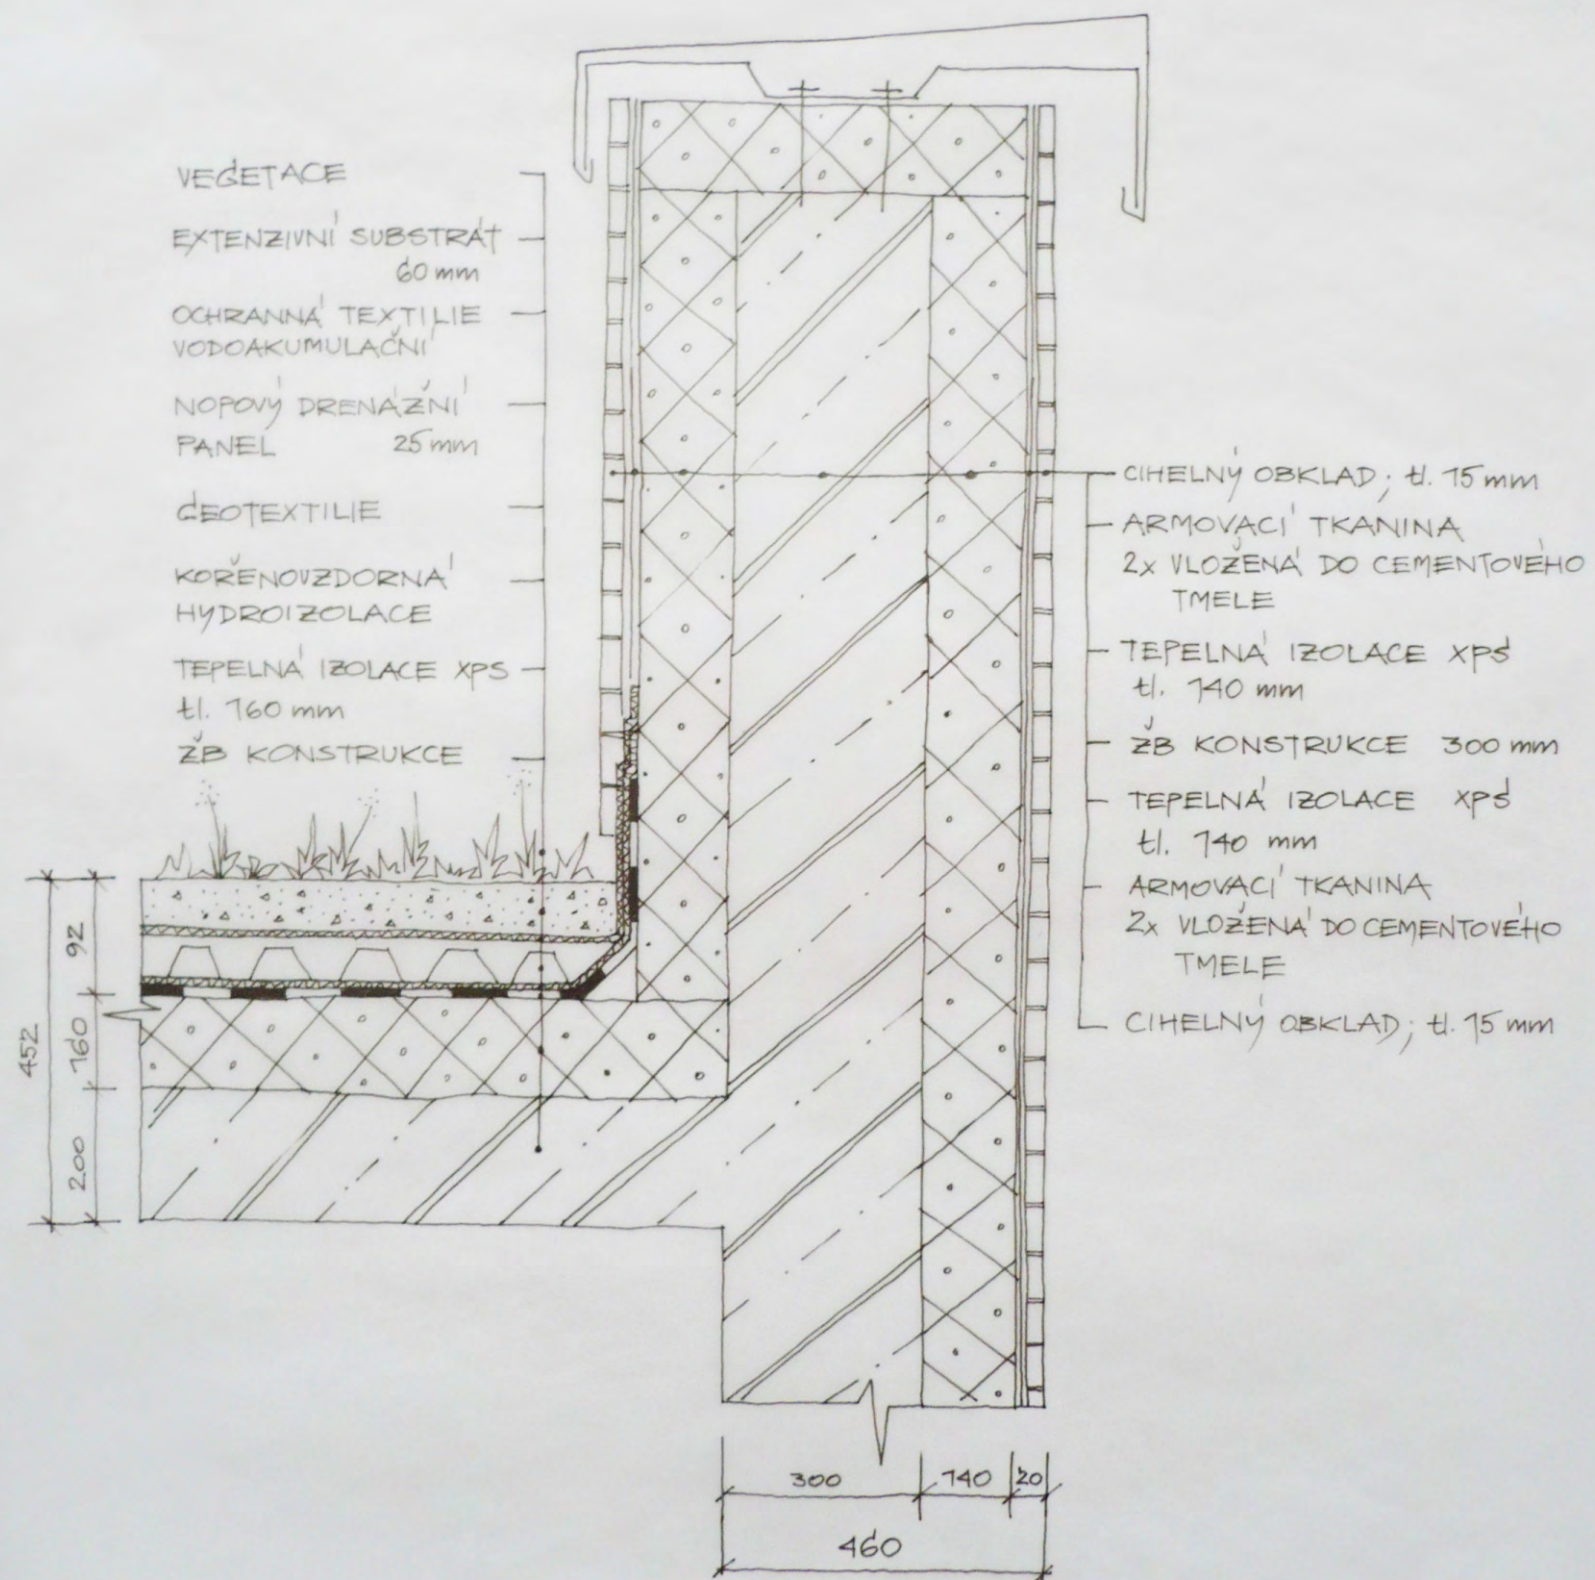 VEGETACE
EXTENZIVNÍ SUBSTRÁT
60 mm
OCHRANNÁ TEXTILIE
VODOAKUMULAČNÍ
NOPOVÝ DRENÁŽNÍ
PANEL 25 mm
GEOTEXTILIE
KOŘENOVZDORNÁ
HYDROIZOLACE
TEPELNÁ IZOLACE XPS
tl. 160 mm
ŽB KONSTRUKCE
CIHELNÝ OBKLAD; tl. 15 mm
ARMOVACÍ TKANINA
2x VLOŽENÁ DO CEMENTOVÉHO
TMELE
TEPELNÁ IZOLACE XPS
tl. 140 mm
ŽB KONSTRUKCE 300 mm
TEPELNÁ IZOLACE XPS
tl. 140 mm
ARMOVACÍ TKANINA
2x VLOŽENÁ DO CEMENTOVÉHO
TMELE
CIHELNÝ OBKLAD; tl. 15 mm
92
160
200
452
300
140
20
460